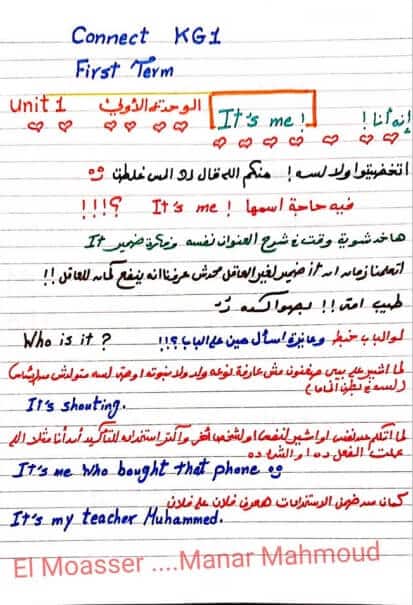 Connect KG1
First Term
Unit 1 الوحدة الأولي It's me ! إنه أنا !
اتخضيتوا ولا لسه ! منكم الله قال ايه الميس غلطت
فيه حاجة اسمها It's me ! ؟!!!
هاخد شوية وقت في شرح العنوان نفسه وفكرة ضمير It
اتعلمنا زمان ان it ضمير لغير العاقل محدش عرفنا انه ينفع كمان للعاقل !!
طيب امتى !! بصوا كده
لو الباب خبط وعايزة اسأل مين على الباب ؟!! Who is it ?
لما اشير على بيبي مش عارفة نوعه ولد ولا بنوته او حتى لسه متولدش
(لسه في بطن الماما)
It's shouting.
لما اتكلم عن نفسي او اشير لنفسي او لشخص وأكتر استخدامه للتأكيد أن أنا مثلا اللي
عملت الفعل ده او الشئ ده
It's me who bought that phone
كمان من ضمن الاستخدامات هعرف فلان على فلان
It's my teacher Muhammed.
El Moasser ....Manar Mahmoud